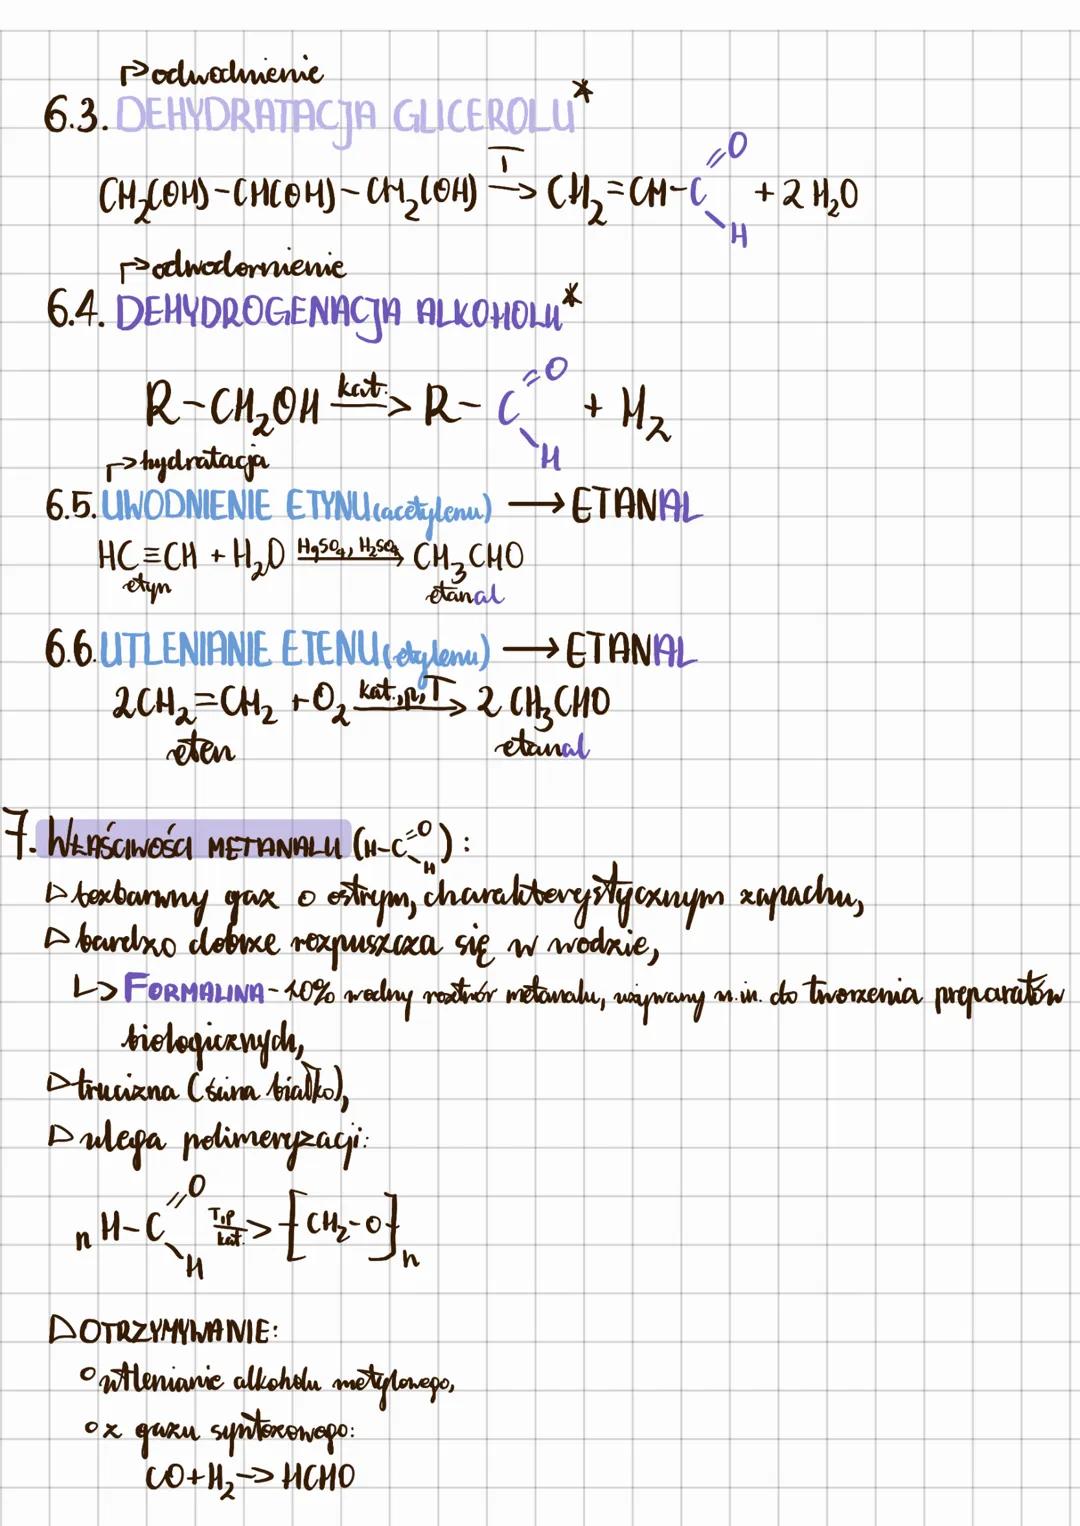 ↱odwodnienie
6.3. DEHYDRATACJA GLICEROLU*
CH₂(OH)-CH(OH)-CH₂(OH) T→ CH₂=CH-C=O-H + 2 H₂O
↱odwodornienie
6.4. DEHYDROGENACJA ALKOHOLU*
R-CH₂OH kat.→ R-C=O-H + H₂
↱hydratacja
6.5. UWODNIENIE ETYNU (acetylenu) → ETANAL
HC≡CH + H₂O HgSO₄, H₂SO₄→ CH₃CHO
etyn etanal
6.6. UTLENIANIE ETENU (etylenu) → ETANAL
2CH₂=CH₂ + O₂ kat., p, T→ 2 CH₃CHO
eten etanal
7. WŁAŚCIWOŚCI METANALU (H-C=O-H):
▷ bezbarwny gaz o ostrym, charakterystycznym zapachu,
▷ bardzo dobrze rozpuszcza się w wodzie,
↳ FORMALINA - 40% wodny roztwór metanalu, używany m.in. do tworzenia preparatów
biologicznych,
▷ trucizna (ścina białko),
▷ ulega polimeryzacji:
n H-C=O-H T,p kat.→ [CH₂-O]n
▷ OTRZYMYWANIE:
○ utlenianie alkoholu metylowego,
○ z gazu syntezowego:
CO+H₂→HCHO